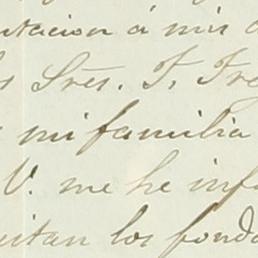 ntacion á mis
Sres. T. Tre
mi familia
V. me he inf
sitan los fondo